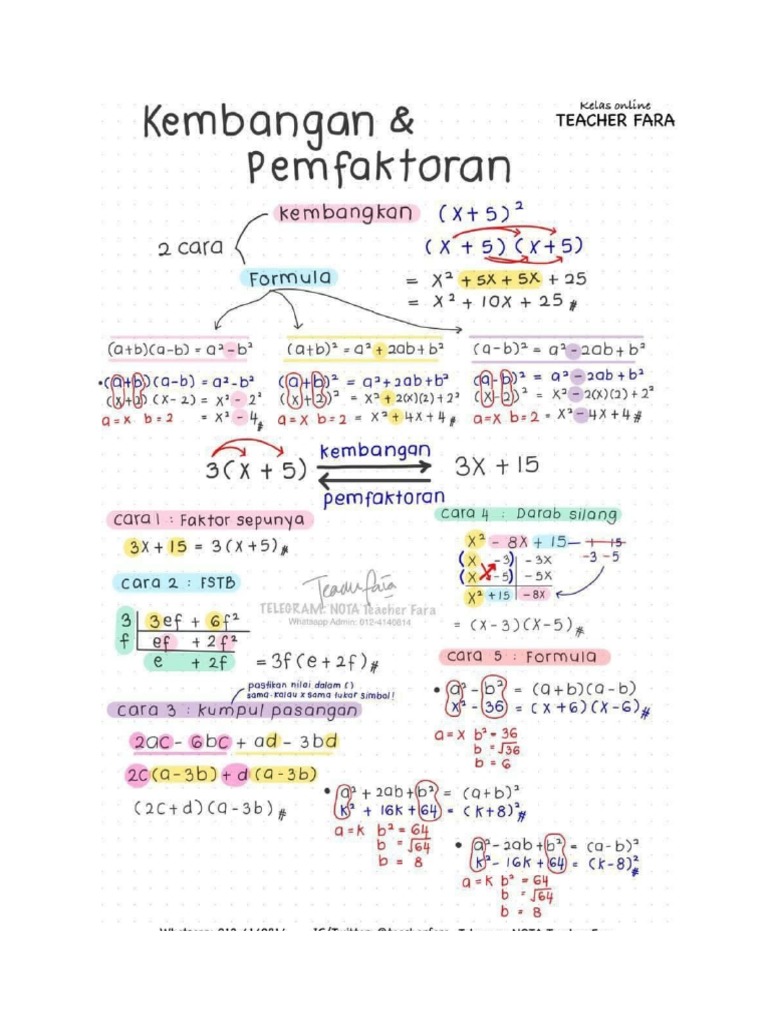 Kelas online
TEACHER FARA
Kembangan &
Pemfaktoran
2 cara
kembangkan (x+5)²
(x + 5) (x+5)
= x² + 5x + 5x + 25
= x² + 10x + 25 #
Formula
(a+b)(a-b) = a² - b²
• (a+b)(a-b) = a² - b²
(x+2)(x-2) = x² - 2²
= x² - 4 #
a=x b=2
(a+b)² = a² + 2ab + b²
(a+b)² = a² + 2ab + b²
(x+2)² = x² + 2(x)(2) + 2²
a=x b=2 = x² + 4x + 4 #
(a-b)² = a² - 2ab + b²
(a-b)² = a² - 2ab + b²
(x-2)² = x² - 2(x)(2) + 2²
a=x b=2 = x² - 4x + 4 #
3(x + 5) kembangan 3x + 15
pemfaktoran
cara 1 : Faktor sepunya
3x + 15 = 3(x+5) #
cara 2 : FSTB
3 3ef + 6f²
f ef + 2f²
e + 2f = 3f(e + 2f) #
Teacher Fara
TELEGRAM: NOTA Teacher Fara
Whatsapp Admin: 012-4146814
pastikan nilai dalam ()
sama. kalau x sama tukar simbol!
cara 3 : kumpul pasangan
2ac - 6bc + ad - 3bd
2c(a-3b) + d(a-3b)
(2c+d)(a-3b) #
cara 4 : Darab silang
x² - 8x + 15
-3 -5
(x -3) -3x
(x -5) -5x
x² +15 -8x
= (x-3)(x-5) #
cara 5 : Formula
• a² - b² = (a+b)(a-b)
x² - 36 = (x+6)(x-6) #
a=x b² = 36
b = √36
b = 6
• a² + 2ab + b² = (a+b)²
k² + 16k + 64 = (k+8)² #
a=k b² = 64
b = √64
b = 8
• a² - 2ab + b² = (a-b)²
k² - 16k + 64 = (k-8)² #
a=k b² = 64
b = √64
b = 8